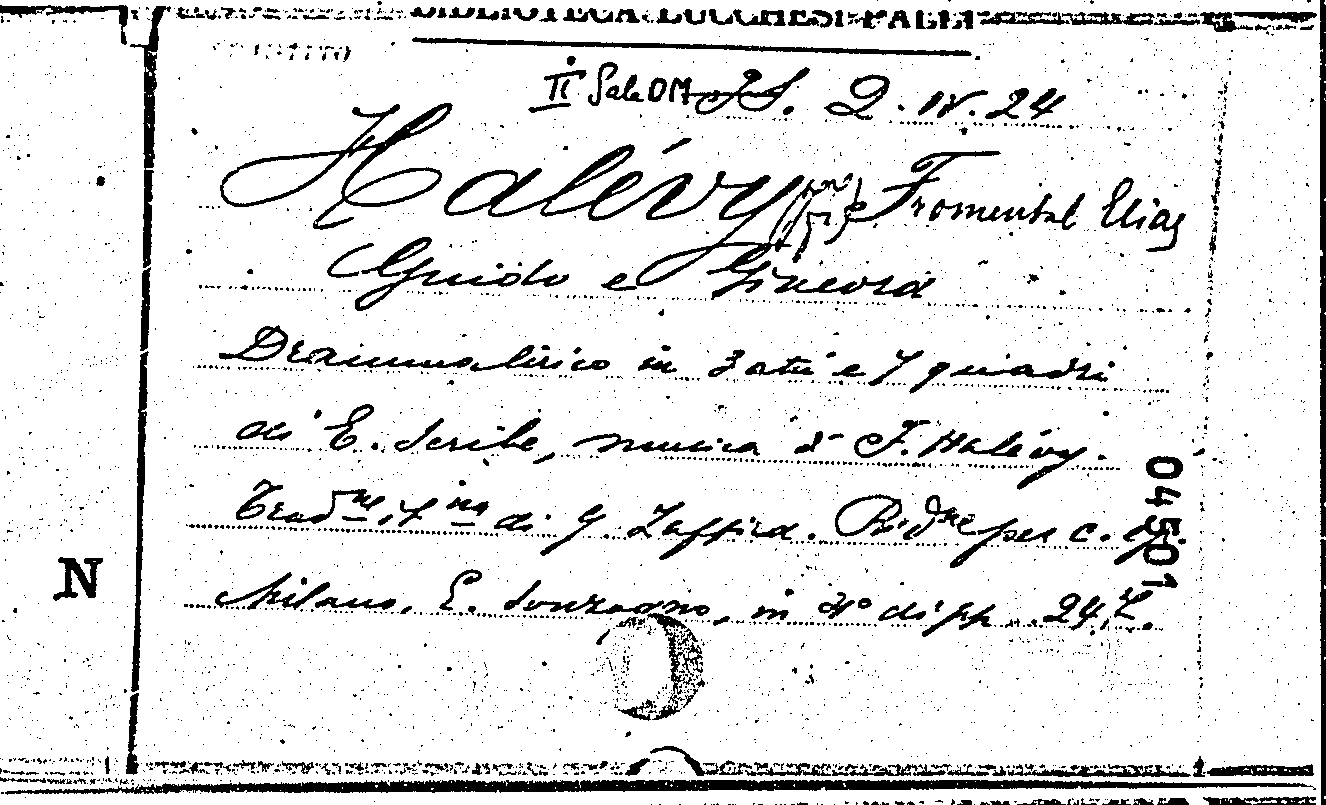 BIBLIOTECA LUCCHESI-PALLI
II Sala OM 2. IV. 24
Halévy Fromental Elias
Guido e Ginevra
Dramma lirico in 3 atti e 7 quadri
di E. Scribe, musica di F. Halévy.
Trad.ne it.na di G. Zaffira. Rid.ne per c. e p.
Milano, E. Sonzogno, in 4° di pp. 247.
04501
N